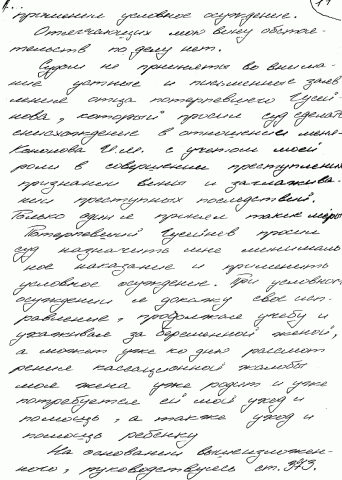 применим условное осуждение.
Отягчающих мою вину обстоя-
тельств по делу нет.
Судом не приняты во внима-
ние устные и письменные заяв
ления отца потерпевшего Гусей
нова, который просил суд сделать
снисхождение в отношении меня-
Кононова И.М. с учетом моей
роли в совершении преступления
признании вины и заглажива-
нии преступных последствий.
Только один я принял такие меры
Потерпевший Гусейнов просил
суд назначить мне минималь
ное наказание и применить
условное осуждение. При условном
осуждении я докажу свое исп-
равление, продолжая учебу и
ухаживая за беременной женой,
а может уже ко дню рассмот
рения кассационной жалобы
моя жена уже родит и уже
потребуется ей мой уход и
помощь, а также уход и
помощь ребенку
На основании вышеизложен-
ного, руководствуясь ст. 373.